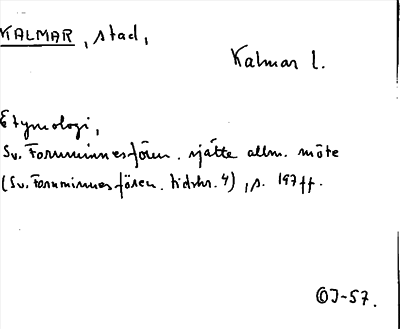 KALMAR, stad,
Kalmar l.
Etymologi,
Sv. Fornminnesfören. sjätte allm. möte
(Sv. Fornminnesfören. tidskr. 4), s. 197 ff.
OJ-57.